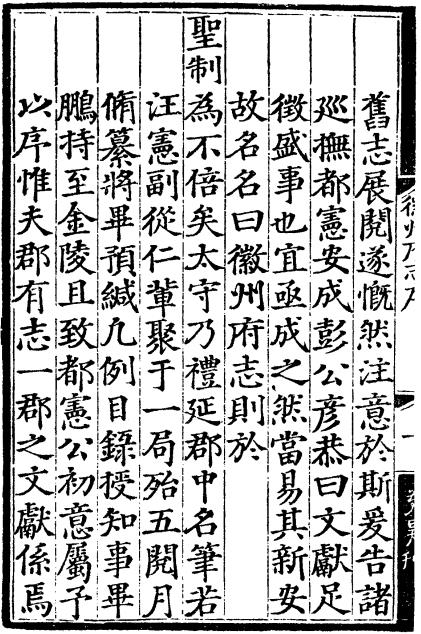 舊志展閱遂慨然注意於斯爰告諸
廵撫都憲安成彭公彥恭曰文獻足
徵盛事也宜亟成之然當易其新安
故名名曰徽州府志則於
聖制為不倍矣太守乃禮延郡中名筆若
汪憲副從仁軰聚于一局殆五閱月
脩纂將畢預緘凡例目錄授知事畢
鵬持至金陵且致都憲公初意屬予
以序惟夫郡有志一郡之文獻係焉
徽州府志序
一